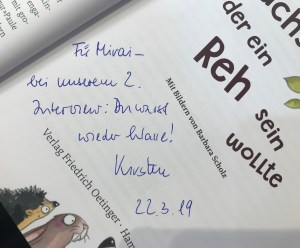 Für Mirai –
bei unserem 2.
Interview: Du warst
wieder klasse!
Kirsten
22.3.19
der ein
Reh
sein
wollte
Mit Bildern von Barbara Scholz
Verlag Friedrich Oetinger · Ham